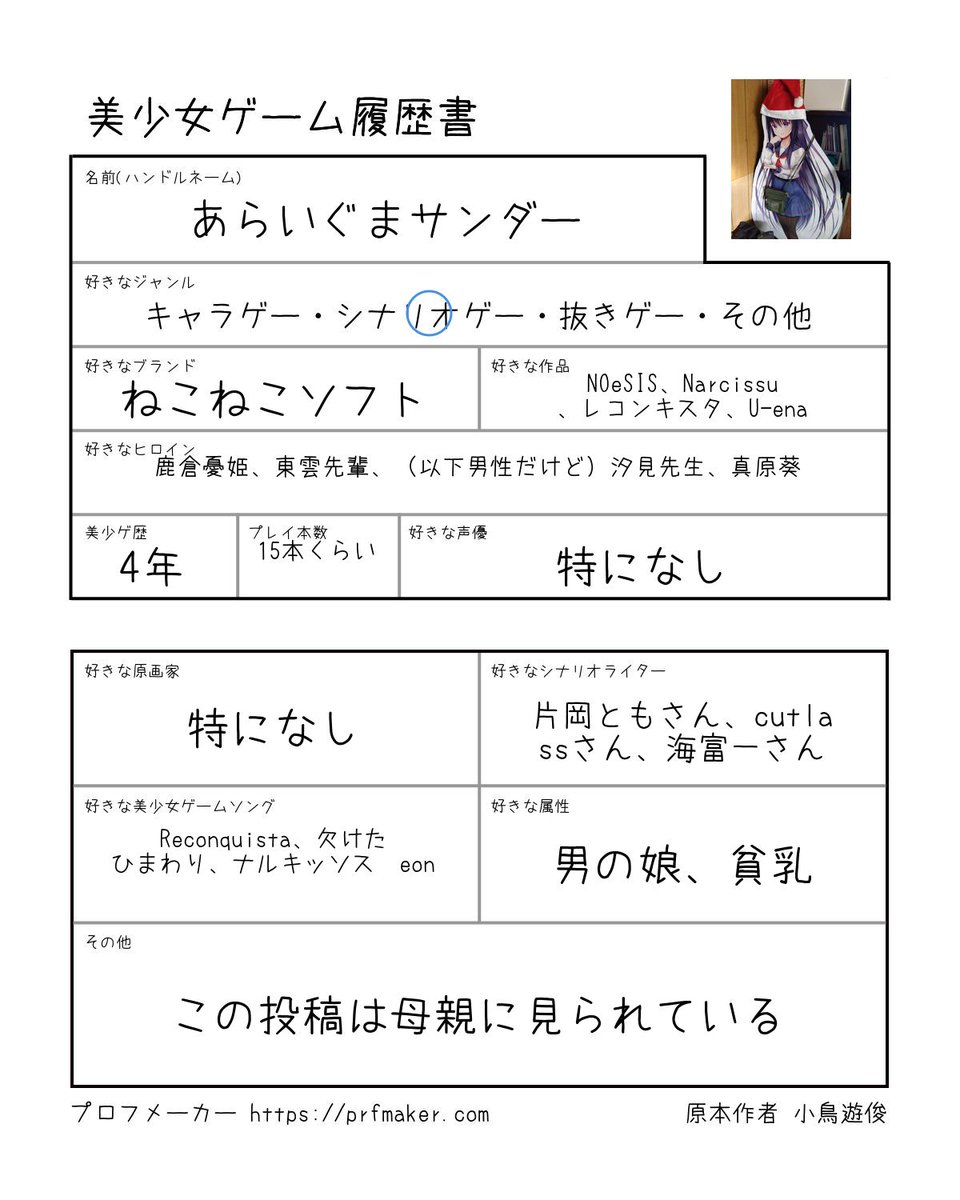 美少女ゲーム履歴書
名前(ハンドルネーム)
あらいぐまサンダー
好きなジャンル
キャラゲー・シナリオゲー・抜きゲー・その他
好きなブランド
ねこねこソフト
好きな作品
NOeSIS、Narcissu
、レコンキスタ、U-ena
好きなヒロイン
鹿倉憂姫、東雲先輩、（以下男性だけど）汐見先生、真原葵
美少ゲ歴
4年
プレイ本数
15本くらい
好きな声優
特になし
好きな原画家
特になし
好きなシナリオライター
片岡ともさん、cutla
ssさん、海富一さん
好きな美少女ゲームソング
Reconquista、欠けた
ひまわり、ナルキッソス　eon
好きな属性
男の娘、貧乳
その他
この投稿は母親に見られている
プロフメーカー https://prfmaker.com
原本作者 小鳥遊俊